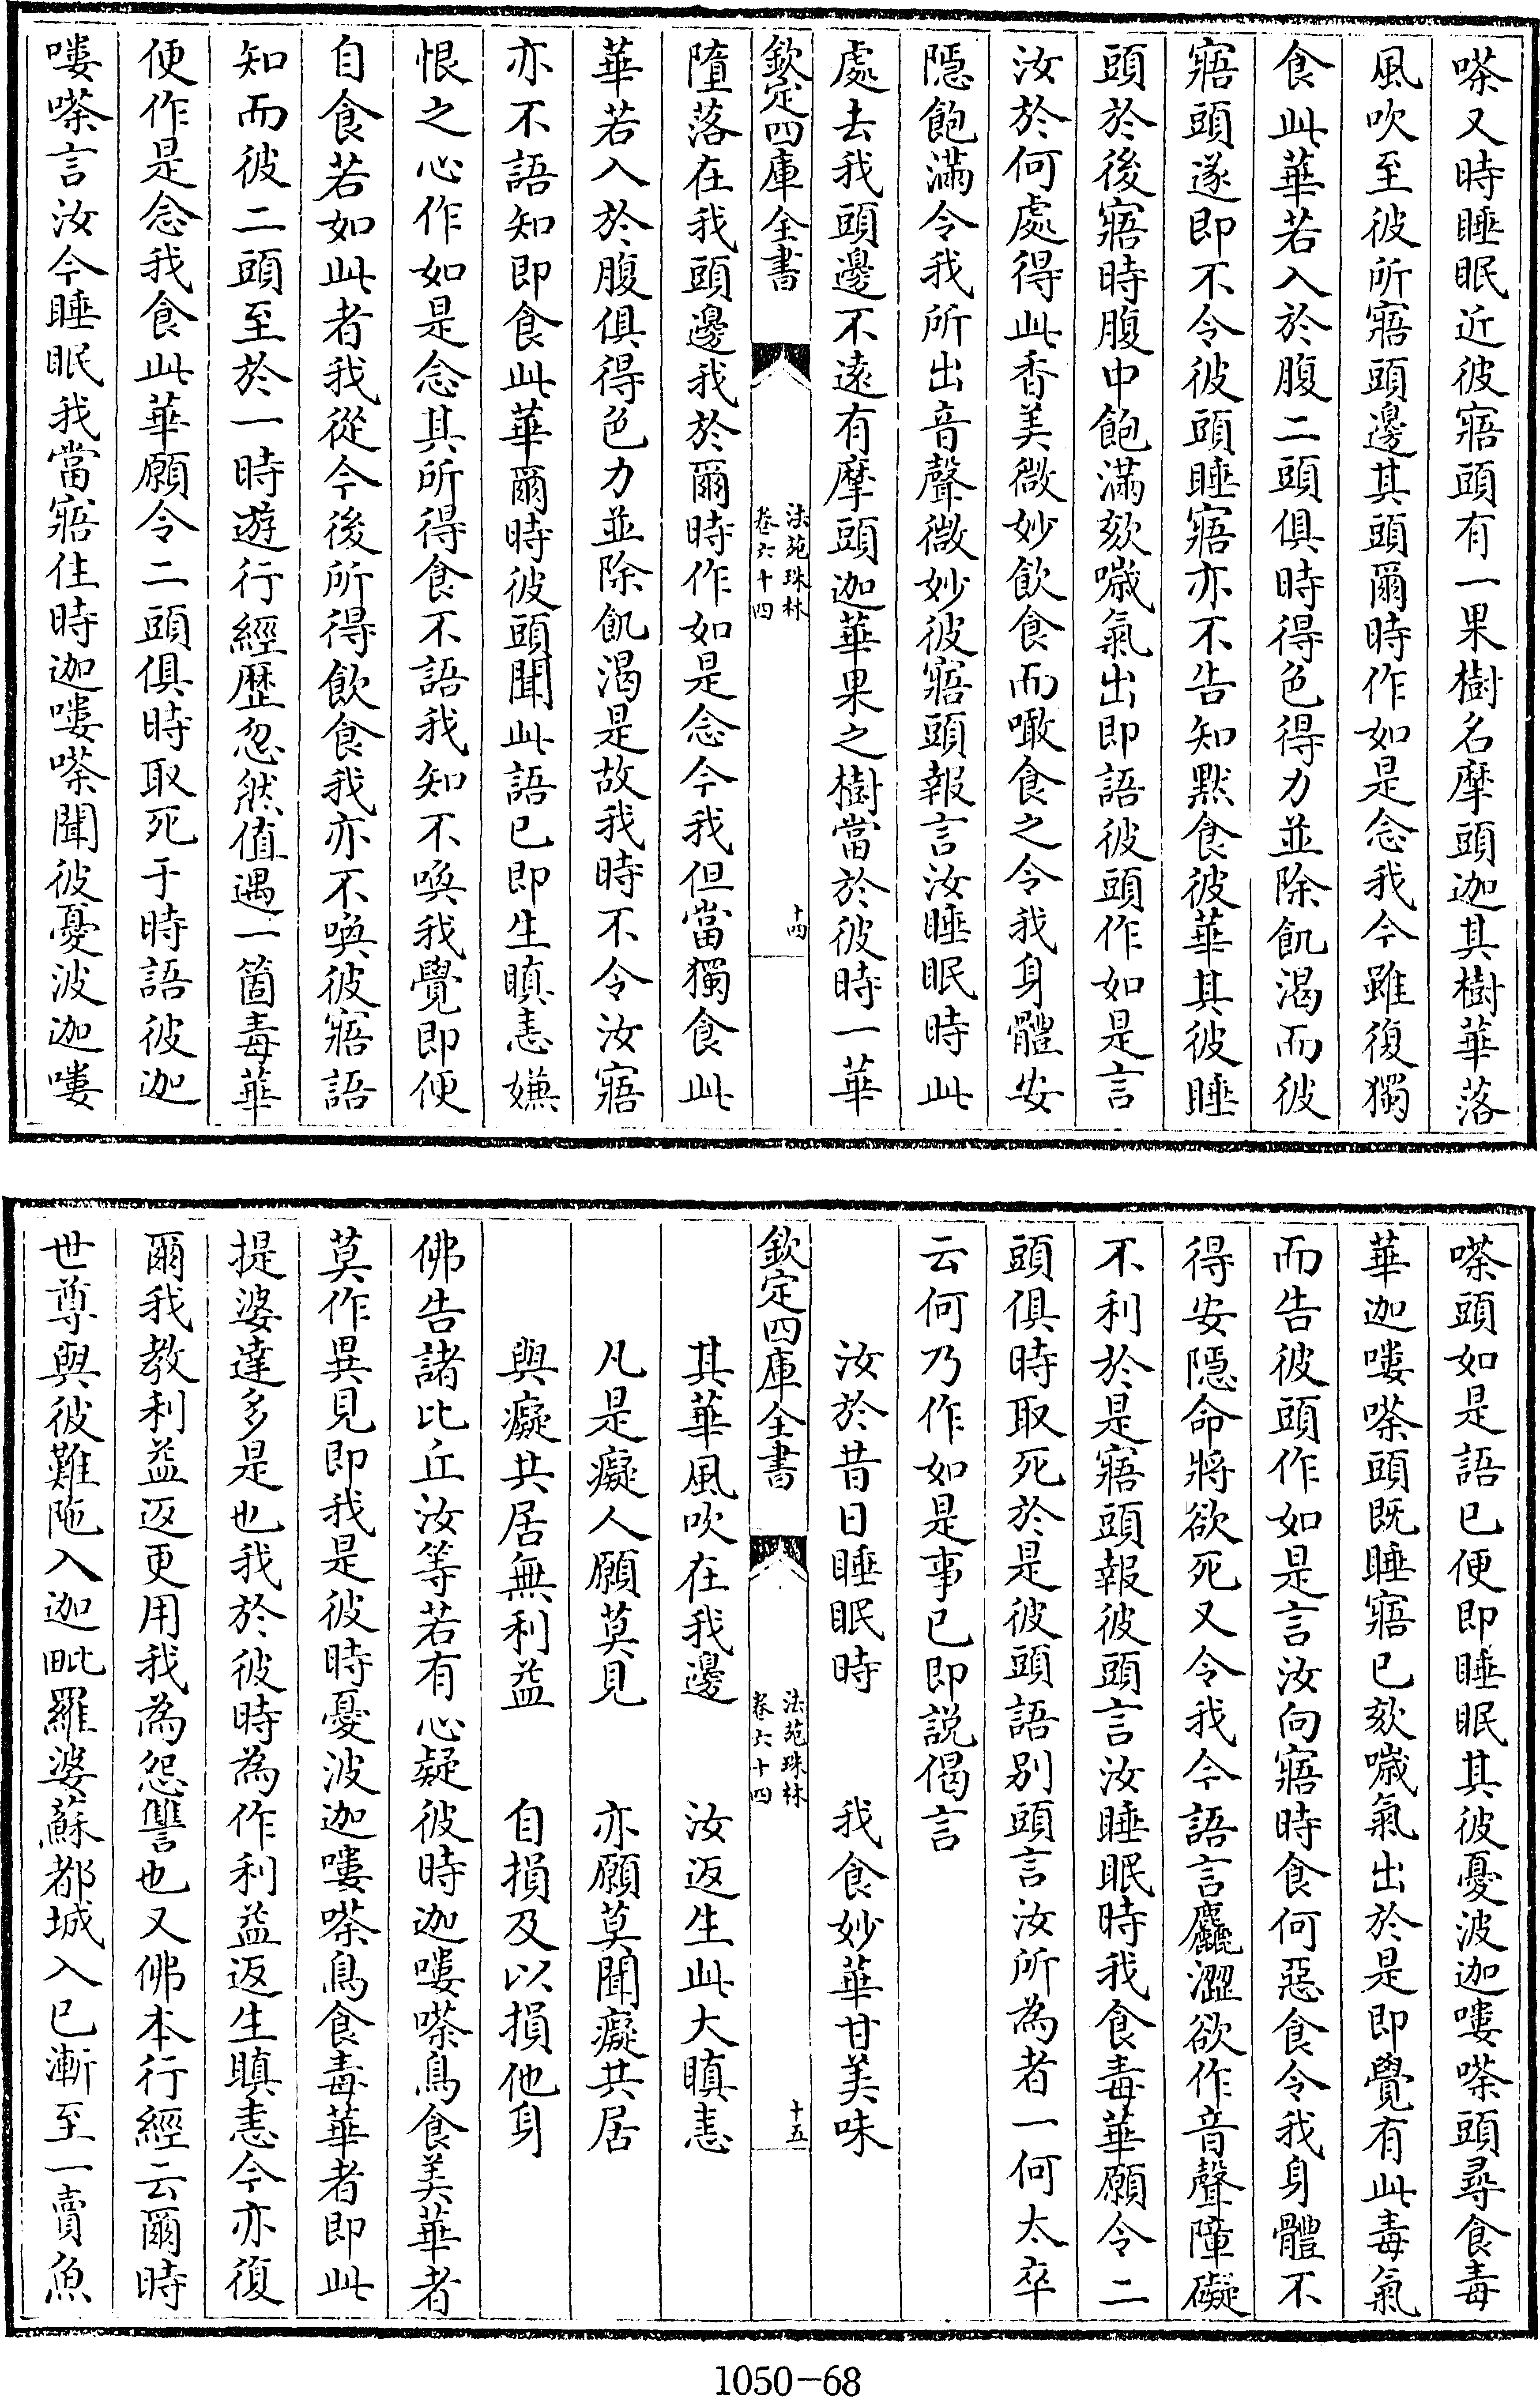 嗏又時睡眠近彼寤頭有一果樹名摩頭迦其樹華落
風吹至彼所寤頭邊其頭爾時作如是念我今雖復獨
食此華若入於腹二頭俱時得色得力並除飢渴而彼
寤頭遂即不令彼頭睡寤亦不告知黙食彼華其彼睡
頭於後寤時腹中飽滿欬噦氣出即語彼頭作如是言
汝於何處得此香美微妙飲食而噉食之令我身體安
隱飽滿令我所出音聲微妙彼寤頭報言汝睡眠時此
處去我頭邊不遠有摩頭迦華果之樹當於彼時一華
欽定四庫全書
法苑珠林
卷六十四
十四
墮落在我頭邊我於爾時作如是念今我但當獨食此
華若入於腹俱得色力並除飢渴是故我時不令汝寤
亦不語知即食此華爾時彼頭聞此語已即生瞋恚嫌
恨之心作如是念其所得食不語我知不喚我覺即便
自食若如此者我從今後所得飲食我亦不喚彼寤語
知而彼二頭至於一時遊行經歷忽然值遇一箇毒華
便作是念我食此華願令二頭俱時取死于時語彼迦
嘍嗏言汝今睡眠我當寤住時迦嘍嗏聞彼憂波迦嘍
嗏頭如是語已便即睡眠其彼憂波迦嘍嗏頭尋食毒
華迦嘍嗏頭既睡寤已欬噦氣出於是即覺有此毒氣
而告彼頭作如是言汝向寤時食何惡食令我身體不
得安隱命將欲死又令我今語言麤澀欲作音聲障礙
不利於是寤頭報彼頭言汝睡眠時我食毒華願令二
頭俱時取死於是彼頭語別頭言汝所為者一何太卒
云何乃作如是事已即説偈言
汝於昔日睡眠時　我食妙華甘美味
欽定四庫全書
法苑珠林
卷六十四
十五
其華風吹在我邊　汝返生此大瞋恚
凡是癡人願莫見　亦願莫聞癡共居
與癡共居無利益　自損及以損他身
佛告諸比丘汝等若有心疑彼時迦嘍嗏鳥食美華者
莫作異見即我是彼時憂波迦嘍嗏鳥食毒華者即此
提婆達多是也我於彼時為作利益返生瞋恚今亦復
爾我教利益返更用我為怨讐也又佛本行經云爾時
世尊與彼難陁入迦毗羅婆蘇都城入已漸至一賣魚
1050-68